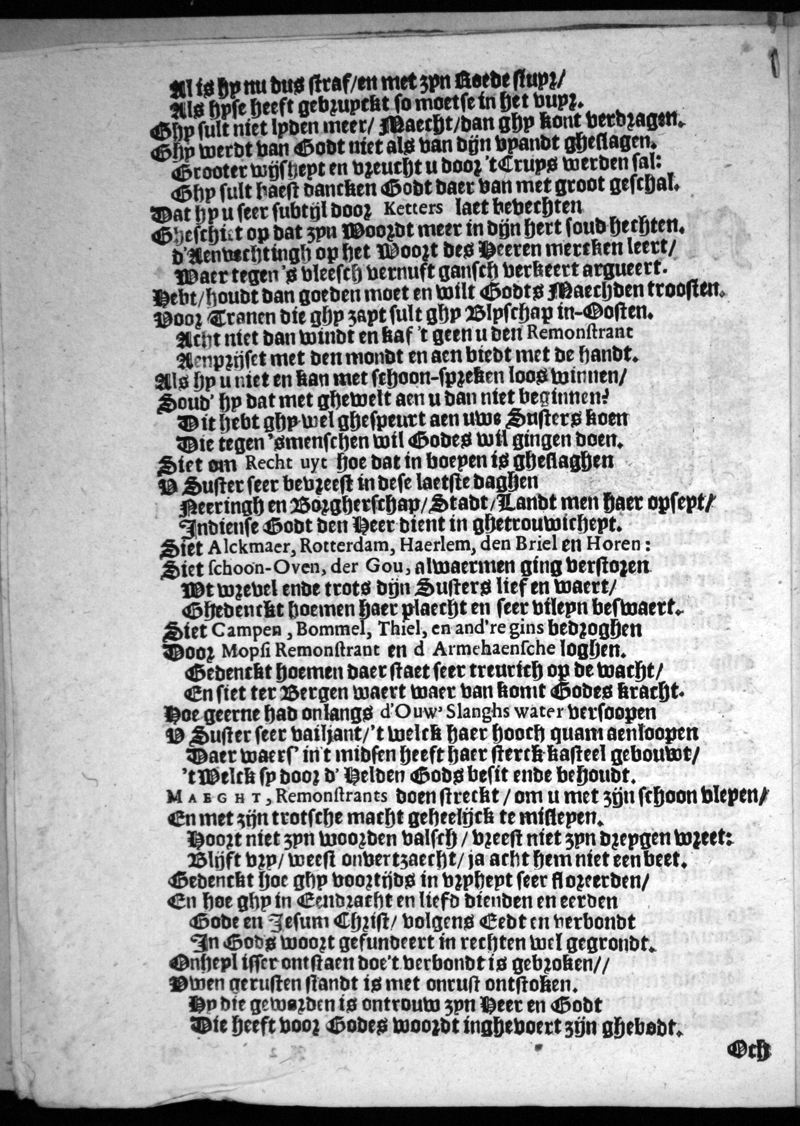 Al is hy nu dus straf/en met zyn Roede stuyr/
Als hyse heeft gebruyckt so moetse in het vuyr.
Ghy sult niet lyden meer/ Maecht/dan ghy kont verdragen.
Ghy werdt van Godt niet als van dijn vyandt gheslagen.
Grooter wijsheyt en vreucht u door 'tCruys werden sal:
Ghy sult haest dancken Godt daer van met groot geschal.
Dat hy u seer subtijl door Ketters laet bevechten
Gheschiet op dat zyn Woordt meer in dijn hert soud hechten.
d'Aenvechtingh op het Woort des Heeren mercken leert/
Waer tegen 's vleesch vernuft gansch verkeert argueert.
Hebt/houdt dan goeden moet en wilt Godts Maechden troosten.
Voor Tranen die ghy zayt sult ghy Blyschap in-Oosten.
Acht niet dan windt en kaf 't geen u den Remonstrant
Aenprijset met den mondt en aen biedt met de handt.
Als hy u niet en kan met schoon-spreken loos winnen/
Soud' hy dat met ghewelt aen u dan niet beginnen?
Dit hebt ghy wel ghespeurt aen uwe Susters koen
Die tegen 'smenschen wil Godes wil gingen doen.
Siet om Recht uyt hoe dat in boeyen is gheslaghen
V Suster seer bevreest in dese laetste daghen
Neeringh en Borgherschap/Stadt/Landt men haer opseyt/
Indiense Godt den Heer dient in ghetrouwicheyt.
Siet Alckmaer, Rotterdam, Haerlem, den Briel en Horen:
Siet schoon-Oven, der Gou, alwaermen ging verstoren
Wt wrevel ende trots dijn Susters lief en waert/
Ghedenckt hoemen haer plaecht en seer vileyn beswaert.
Siet Campen, Bommel, Thiel, en and're gins bedroghen
Door Mopsi Remonstrant en d Armehaensche loghen.
Gedenckt hoemen daer staet seer treurich op de wacht/
En siet ter Bergen waert waer van komt Godes kracht.
Hoe geerne had onlangs d'Ouw' Slanghs water versoopen
V Suster seer vailjant/'t welck haer hooch quam aenloopen
Daer waers' in't midsen heeft haer sterck kasteel gebouwt/
't Welck sy door d' Helden Gods besit ende behoudt.
MAEGHT, Remonstrants doen streckt/om u met zijn schoon vleyen/
En met zijn trotsche macht geheelijck te misleyen.
Hoort niet zyn woorden valsch/vreest niet zyn dreygen wreet:
Blijft vry/weest onvertzaecht/ja acht hem niet een beet.
Gedenckt hoe ghy voortijds in vryheyt seer floreerden/
En hoe ghy in Eendracht en liefd dienden en eerden
Gode en Jesum Christ/ volgens Eedt en verbondt
In Gods woort gefundeert in rechten wel gegrondt.
Onheyl isser ontstaen doe't verbondt is gebroken//
Vwen gerusten standt is met onrust ontstoken.
Hy die geworden is ontrouw zyn Heer en Godt
Die heeft voor Godes woordt inghevoert zijn ghebodt.
Och